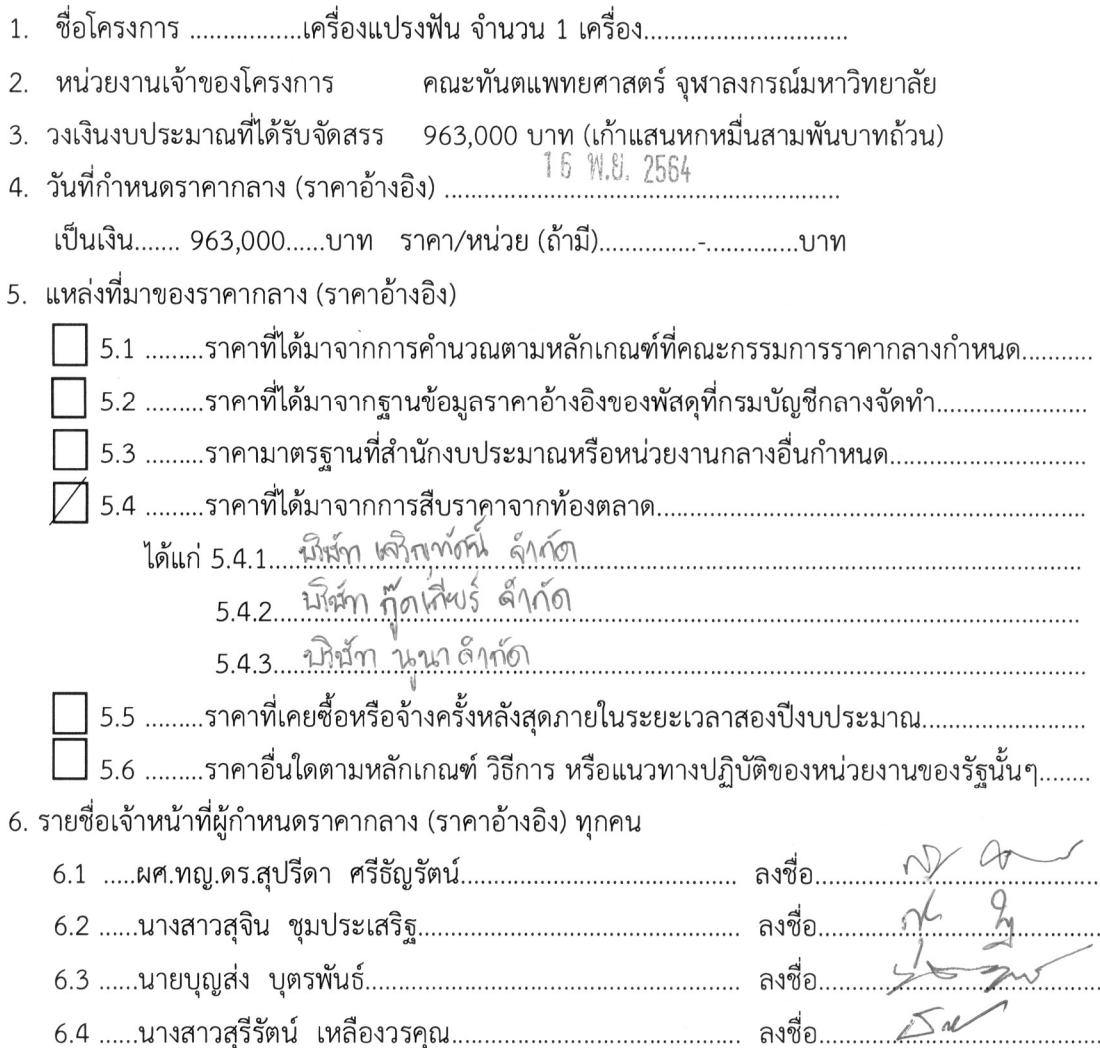 1. ชื่อโครงการ .................เครื่องแปรงฟัน จำนวน 1 เครื่อง...............................
2. หน่วยงานเจ้าของโครงการ คณะทันตแพทยศาสตร์ จุฬาลงกรณ์มหาวิทยาลัย
3. วงเงินงบประมาณที่ได้รับจัดสรร 963,000 บาท (เก้าแสนหกหมื่นสามพันบาทถ้วน)
16 พ.ย. 2564
4. วันที่กำหนดราคากลาง (ราคาอ้างอิง) ............................................................
เป็นเงิน....... 963,000......บาท ราคา/หน่วย (ถ้ามี)...............-..............บาท
5. แหล่งที่มาของราคากลาง (ราคาอ้างอิง)
5.1 .........ราคาที่ได้มาจากการคำนวณตามหลักเกณฑ์ที่คณะกรรมการราคากลางกำหนด...........
5.2 .........ราคาที่ได้มาจากฐานข้อมูลราคาอ้างอิงของพัสดุที่กรมบัญชีกลางจัดทำ.......................
5.3 .........ราคามาตรฐานที่สำนักงบประมาณหรือหน่วยงานกลางอื่นกำหนด..............................
5.4 .........ราคาที่ได้มาจากการสืบราคาจากท้องตลาด.................................................................
ได้แก่ 5.4.1....บริษัท เจริญทัศน์ จำกัด
5.4.2....บริษัท กู๊ดเกียร์ จำกัด
5.4.3....บริษัท นูนา จำกัด
5.5 .........ราคาที่เคยซื้อหรือจ้างครั้งหลังสุดภายในระยะเวลาสองปีงบประมาณ.........................
5.6 .........ราคาอื่นใดตามหลักเกณฑ์ วิธีการ หรือแนวทางปฏิบัติของหน่วยงานของรัฐนั้นๆ........
6. รายชื่อเจ้าหน้าที่ผู้กำหนดราคากลาง (ราคาอ้างอิง) ทุกคน
6.1 .....ผศ.ทญ.ดร.สุปรีดา ศรีธัญรัตน์.......................................... ลงชื่อ
6.2 ......นางสาวสุจิน ชุมประเสริฐ................................................ ลงชื่อ
6.3 ......นายบุญส่ง บุตรพันธ์......................................................... ลงชื่อ
6.4 ......นางสาวสุรีรัตน์ เหลืองวรคุณ............................................ ลงชื่อ